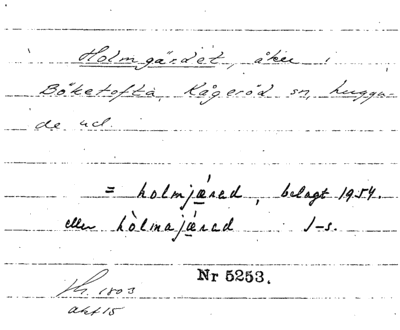 Holmgärdet, åker i
Böketofta, Kågeröd sn, Luggu-
de hd.
= holmjæ̀rad, belagt 1954.
eller hòlmajǽrad J-s.
Nr 5253.
1803
akt 15